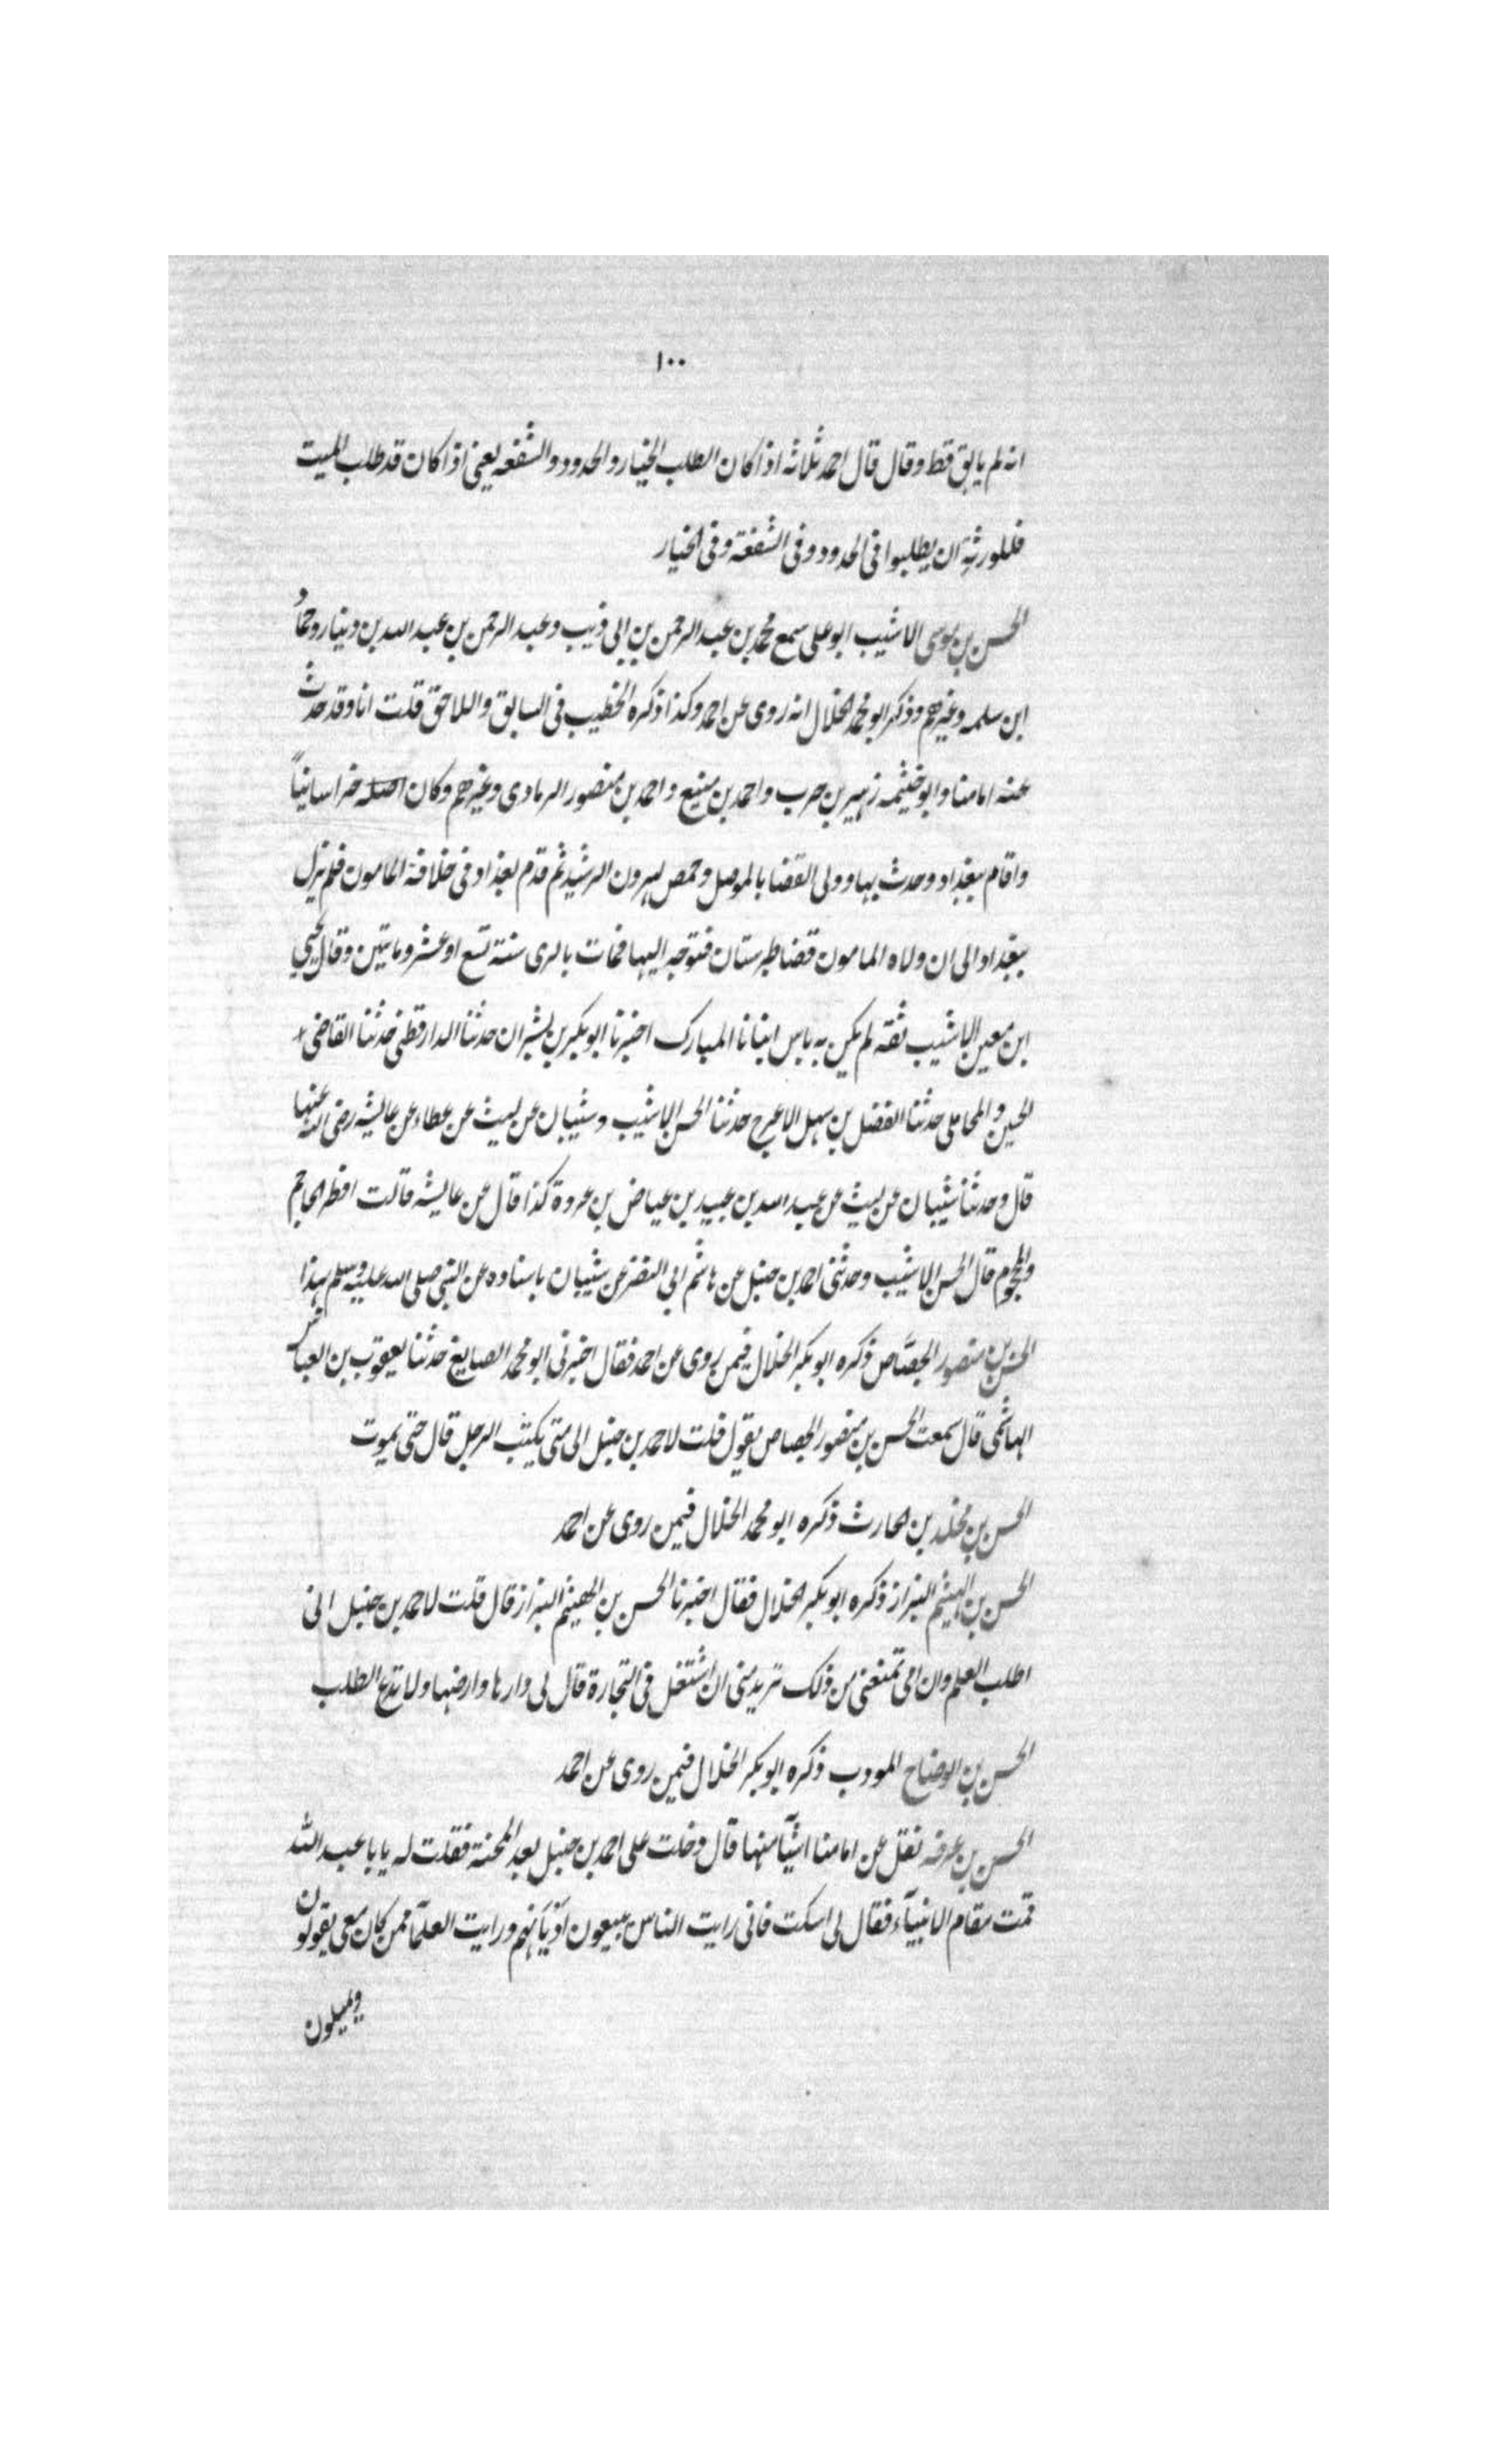 ١٠٠
انه لم يابق قط وقال قال احمد ثلاثه اذا كان الطلب الخيار والحدود والشفعه يعني اذا كان قد طلب الميت
فللورثة ان يطلبوا في الحدود وفي الشفعة وفي الخيار
الحسن بن موسى الاشيب ابو علي سمع محمد بن عبد الرحمن بن ابي ذيب وعبد الرحمن بن عبد الله بن دينار وحماد
ابن سلمه وغيرهم وذكر ابو محمد الخلال انه روى عن احمد وكذا ذكره الخطيب في السابق واللاحق قلت انا وقد حدث
عنه امامنا وابو خيثمه زهير بن حرب واحمد بن منيع واحمد بن منصور الرمادي وغيرهم وكان اصله خراسانياً
واقام ببغداد وحدث بها وولي القضا بالموصل وحمص لهرون الرشيد ثم قدم بغداد في خلافة المامون فلم يزل
ببغداد الى ان ولاه المامون قضا طبرستان فتوجه اليها فمات بالري سنة تسع او عشر وماتين وقال يحيي
ابن معين الاشيب ثقه لم يكن به باس انبانا المبارك اخبرنا ابو بكر بن بشران حدثنا الدارقطني حدثنا القاضي
الحسين والمحاملي حدثنا الفضل بن سهل الاعرج حدثنا الحسن الاشيب وشيبان عن ليث عن عطاء عن عايشه رضي الله عنها
قال وحدثنا شيبان عن ليث عن عبد الله بن عبيد بن عياض بن عروة كذا قال عن عايشه قالت افطر الحاجم
والمحجوم قال الحسن الاشيب وحدثني احمد بن حنبل عن هاشم ابي النضر عن شيبان باسناده عن النبي صلى الله عليه وسلم بهذا
الحسن بن منصور الجصّاص ذكره ابو بكر الخلال فيمن روى عن احمد فقال اخبرني ابو محمد الصايغ حدثنا يعقوب بن العباس
الهاشمي قال سمعت الحسن بن منصور الجصاص يقول قلت لاحمد بن حنبل الى متى يكتب الرجل قال حتى يموت
الحسن بن مخلد بن الحارث ذكره ابو محمد الخلال فيمن روى عن احمد
الحسن بن الهيثم البزاز ذكره ابو بكر الخلال فقال اخبرنا الحسن بن الهيثم البزاز قال قلت لاحمد بن حنبل اني
اطلب العلم وان امي تمنعني من ذلك تريد مني ان اشتغل في التجارة قال لي دارها وارضها ولا تدع الطلب
الحسن بن الوضاح المودب ذكره ابو بكر الخلال فيمن روى عن احمد
الحسن بن عرفه نقل عن امامنا اشيآ منها قال دخلت على احمد بن حنبل بعد المحنة فقلت له يا با عبد الله
قمت مقام الانبيآء فقال لي اسكت فاني رايت الناس يبيعون اديانهم ورايت العلمآ ممن كان معي يقولون
ويميلون